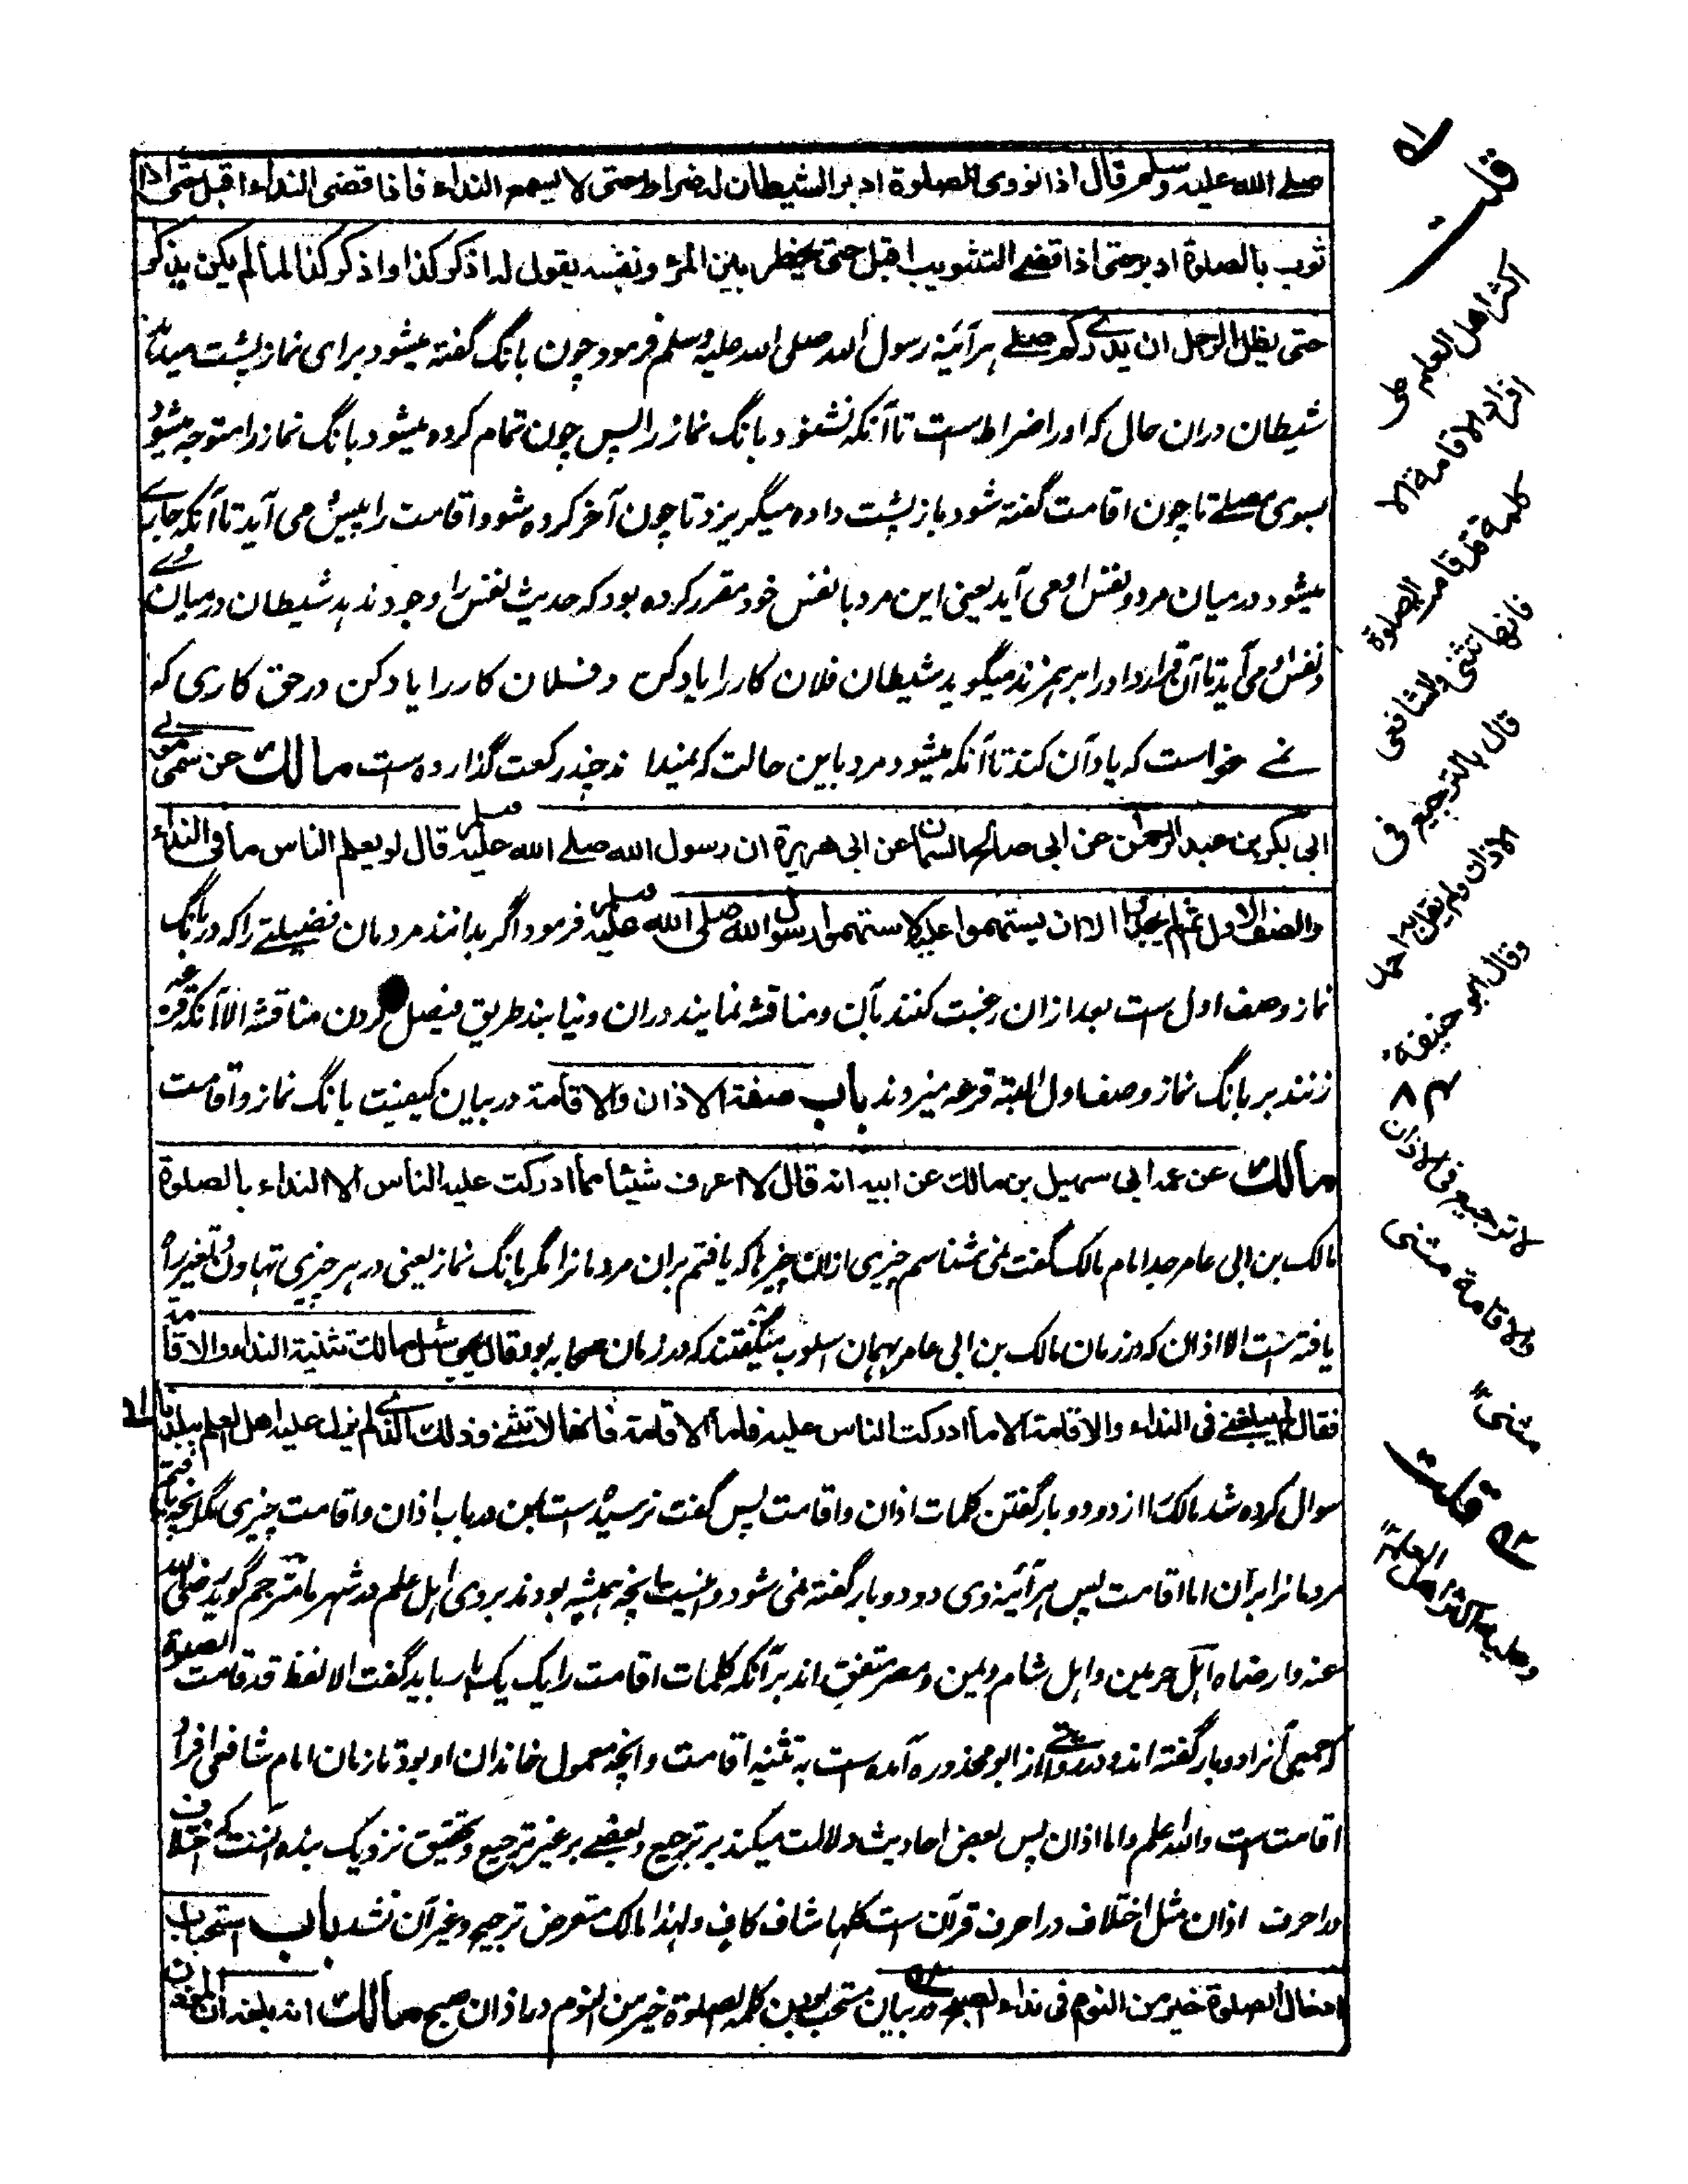 صلے الله علیه وسلم قال اذا نودی للصلوة ادبر الشیطان له ضراط حتی لا یسمع النداء فاذا قضی النداء اقبل حتی اذا
ثوب بالصلوة ادبر حتی اذا قضے التثویب اقبل حتی یخطر بین المرء ونفسه یقول له اذکر کذا واذکر کذا لما لم یکن یذکر
حتی یظل الرجل ان یدری کم صلے ہرآئینہ رسول الله صلی الله علیہ وسلم فرمود چون بانگ گفتہ میشود برای نماز پشت میدہد
شیطان دران حال کہ اورا ضراط ست تا آنکہ نشنود بانگ نماز را پس چون تمام کردہ میشود بانگ نماز را متوجہ میشود
بسوی مصلے تا چون اقامت گفتہ شود باز پشت دادہ میگریزد تا چون آخر کردہ شود اقامت را پیش می آید تا آنکہ حایل
میشود درمیان مرد و نفس او می آید یعنی این مرد با نفس خود مقرر کردہ بود کہ حدیث نفس را وجود ندہد شیطان درمیان وے
و نفس او می آید تا آن قرارداد را برہم زند میگوید شیطان فلان کار را یاد کن و فلان کار را یاد کن در حق کاری کہ
نمے خواست کہ یاد آن کند تا آنکہ میشود مرد باین حالت کہ نمیداند چند رکعت گذاردہ ست مالک عن سمی مولے
ابی بکر بن عبد الرحمن عن ابی صالح السمان عن ابی هریرة ان رسول الله صلے الله علیه وسلم قال لو یعلم الناس ما فی النداء
والصف الاول ثم لم یجدوا الا ان یستهموا علیه لاستهموا رسول الله صلی الله علیه وسلم فرمود اگر بدانند مردمان فضیلتے را کہ در بانگ
نماز وصف اول ست بعد ازان رغبت کنند بآن ومناقشہ نمایند دران ونیابند طریق فیصل کردن مناقشہ الا آنکہ قرعہ
زنند بر بانگ نماز وصف اول البتہ قرعہ میزدند باب صفة الاذان والاقامة در بیان کیفیت بانگ نماز واقامت
مالک عن عمه ابی سهیل بن مالک عن ابیه انه قال لا اعرف شیئا مما ادرکت علیه الناس الا النداء بالصلوة
مالک بن ابی عامر جد امام مالک گفت نمی شناسم چیزی ازان چیزہا کہ یافتم بران مردمانرا مگر بانگ نماز یعنی در ہر چیزی تہاون وتغیر راہ
یافتہ ست الا اذان کہ در زمان مالک بن ابی عامر بہمان اسلوب میگفتند کہ در زمان صحابہ بود قال یحیی سئل مالک تثنیة النداء والاقامة
فقال لم یبلغنے فی النداء والاقامة الا ما ادرکت الناس علیه فاما الاقامة فانها لا تثنے وذلک الذی لم یزل علیه اهل العلم ببلدنا
سوال کردہ شد مالک را از دو دو بار گفتن کلمات اذان واقامت پس گفت نرسیدہ ست بمن در باب اذان واقامت چیزی مگر آنچہ یافتم
مردمانرا بران اما اقامت پس ہرآئینہ وی دو دو بار گفتہ نمی شود و ہمینست آنچہ ہمیشہ بودند بروی اہل علم در شہر ما مترجم گوید رضی الله
عنہ وارضاه اہل حرمین واہل شام ویمن ومصر متفق اند بر آنکہ کلمات اقامت را یک یک بار باید گفت الا لفظ قد قامت الصلوة
کہ جمعی آنرا دوبار گفتہ اند و در روایتے از ابو محذورہ آمدہ ست بہ تثنیہ اقامت وانچہ معمول خاندان او بود تا زمان امام شافعی افراد
اقامت ست والله اعلم واما اذان پس بعض احادیث دلالت میکند بر ترجیع وبعضے بر غیر ترجیع وتحقیق نزدیک بندہ آنست کہ اختلاف
در احرف اذان مثل اختلاف در احرف قرآن ست کلها شاف کاف ولہذا مالک متعرض ترجیع وغیر آن نشد باب استحباب
ادخال الصلوة خیر من النوم فی نداء الصبح در بیان مستحب بودن کلمہ الصلوة خیر من النوم در اذان صبح مالک انه بلغه ان المؤذن
قلت
اکثر اهل العلم علی
افراد الاقامة الا
کلمة قد قامت الصلوة
فانها تثنی والشافعی
قال بالترجیع فی
الاذان ولم یقل به احمد
وقال ابو حنیفة
لا ترجیع فی الاذان
والاقامة مثنی
مثنی
قلت
وعلیه اکثر اهل العلم